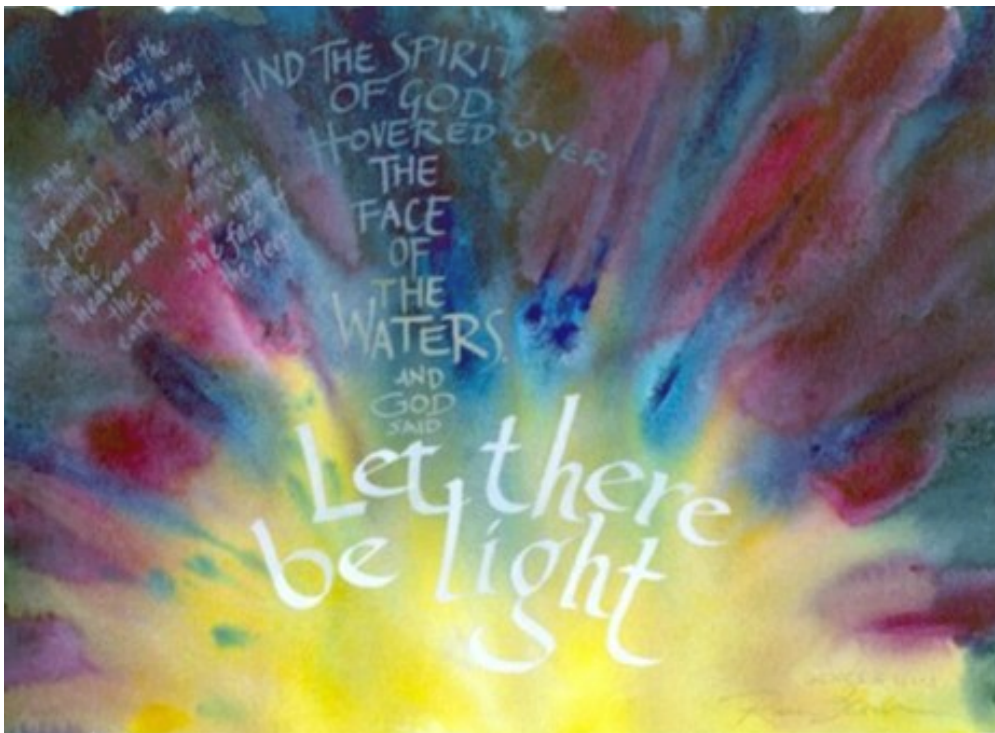 In the
beginning
God created
the
heaven and
the
earth
Now the
earth was
unformed
and
void
and
darkness
was upon
the face of
the deep
AND THE SPIRIT
OF GOD
HOVERED OVER
THE
FACE
OF
THE
WATERS.
AND
GOD
SAID
Let there
be light